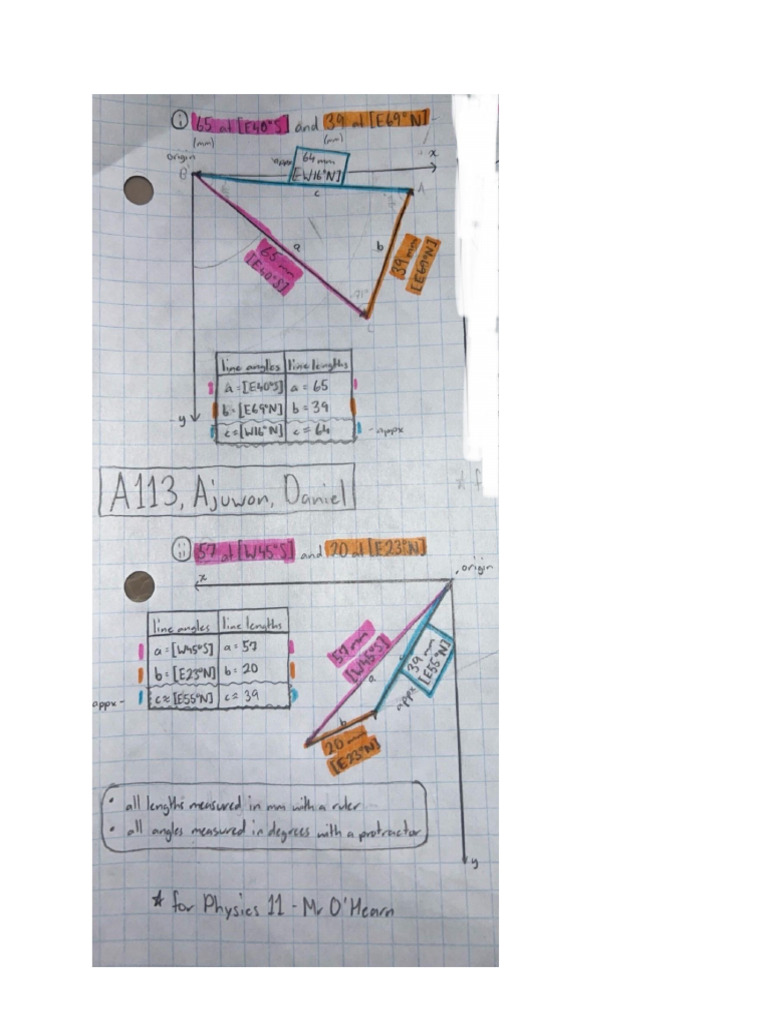 i 65 at [E40°S] and 39 at [E69°N]
(mm) (mm)
origin
B
x
appx 64 mm
[EW16°N]
c
A
a
b
65 mm
[E40°S]
39 mm
[E69°N]
71°
C
line angles line lengths
a = [E40°S] a = 65
b = [E69°N] b = 39
c ≈ [W16°N] c ≈ 64 - appx
y
A113, Ajuwon, Daniel
ii 57 at [W45°S] and 20 at [E23°N]
x
origin
line angles line lengths
a = [W45°S] a = 57
b = [E23°N] b = 20
appx - c ≈ [E55°N] c ≈ 39
57 mm
[W45°S]
a
appx 39 mm
[E55°N]
b
20 mm
[E23°N]
• all lengths measured in mm with a ruler
• all angles measured in degrees with a protractor
y
* for Physics 11 - Mr O'Hearn